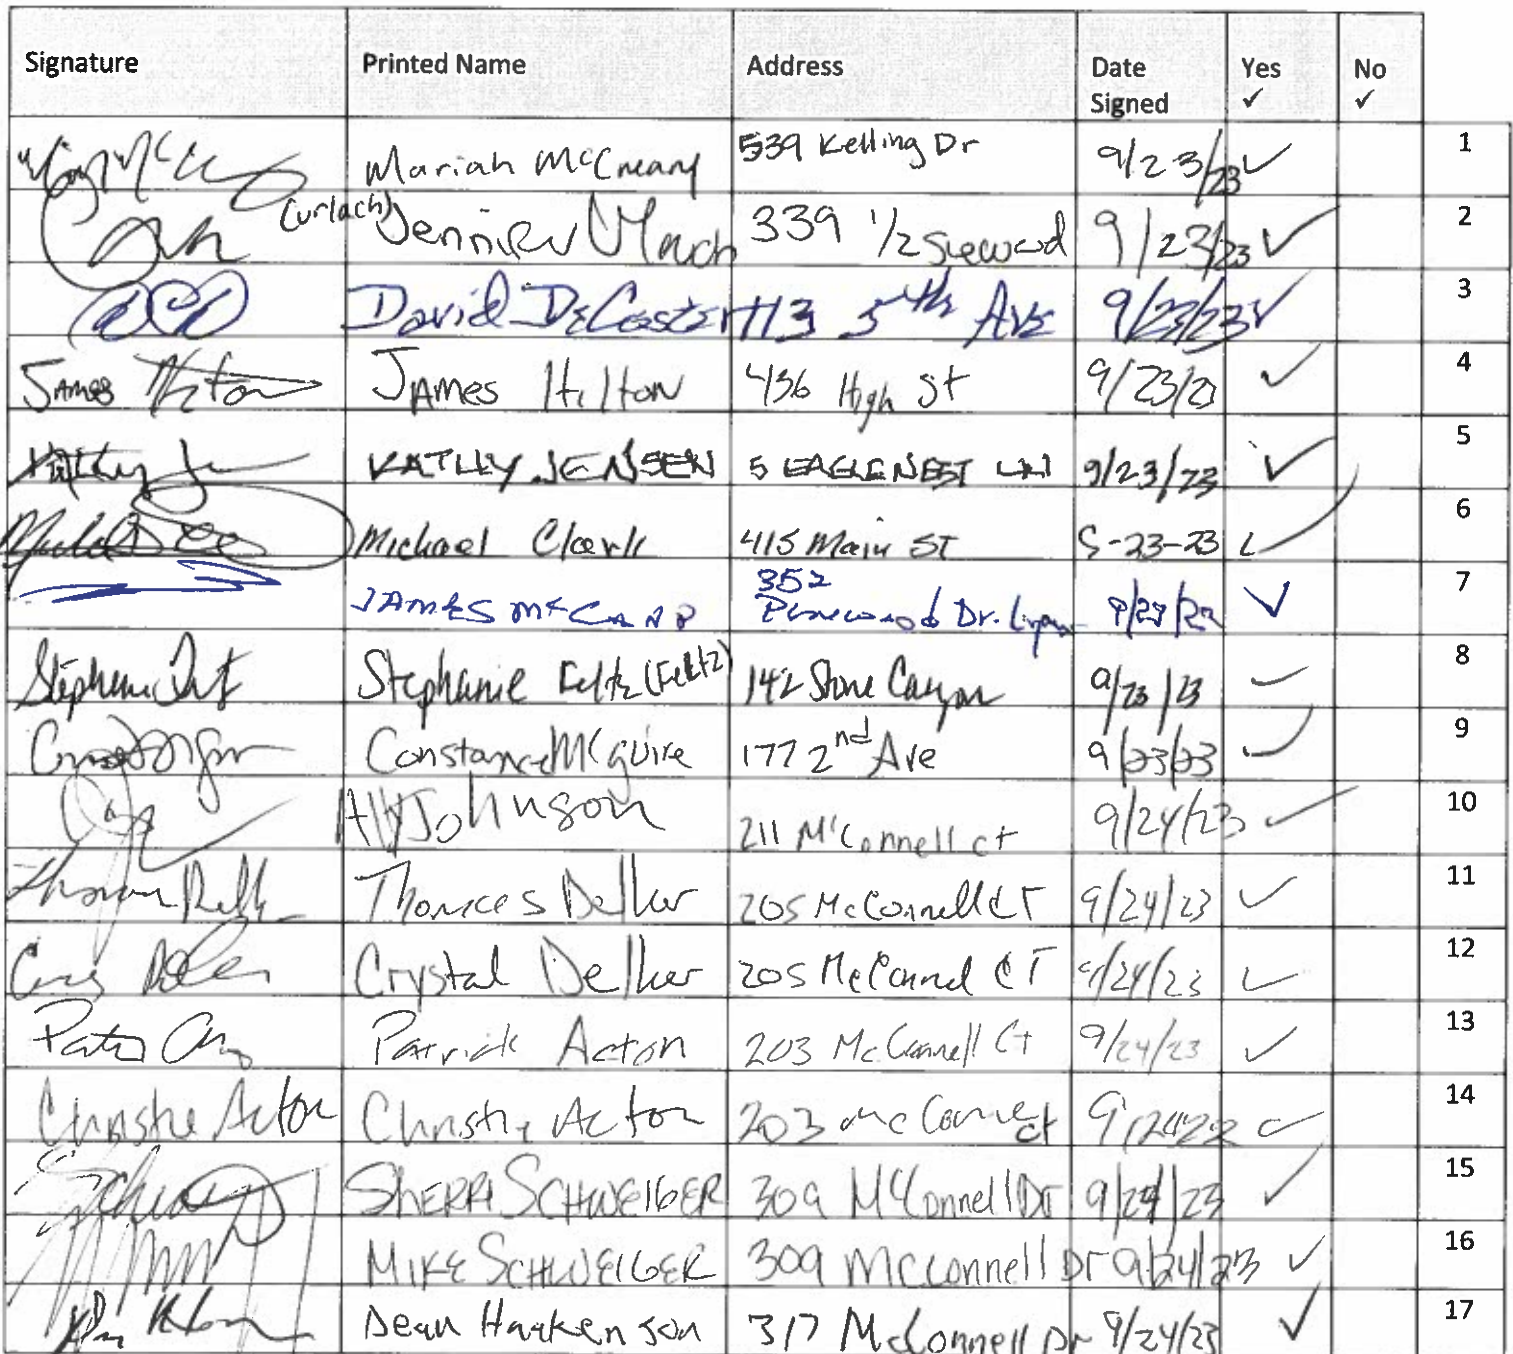 Signature Printed Name Address Date Signed Yes ✓ No ✓
Mariah McCreary 539 Kelling Dr 9/23/23 ✓ 1
(urlach) Jennifer Urlach 339 1/2 Steward 9/23/23 ✓ 2
David DeCoster 113 5th Ave 9/23/23 ✓ 3
James Hilton JAMES HILTON 436 High St 9/23/23 ✓ 4
Kathy KATHY JENSEN 5 EAGLE NEST LN 9/23/23 ✓ 5
Michael Clark 415 Main ST 9-23-23 ✓ 6
JAMES McCANN 352 Pinewood Dr. Lyons 9/23/23 ✓ 7
Stephanie Feltz (Feltz) 142 Stone Canyon 9/23/23 ✓ 8
Constance McGuire 177 2nd Ave 9/23/23 ✓ 9
Johnson 211 McConnell ct 9/24/23 ✓ 10
Thomas Delker 205 McConnell CT 9/24/23 ✓ 11
Crystal Delker 205 McConnel CT 9/24/23 ✓ 12
Patrick Acton 203 McConnell Ct 9/24/23 ✓ 13
Christie Acton Christie Acton 203 ct ✓ 14
SHERRI SCHWEIGER 309 McConnell Dr 9/24/23 ✓ 15
MIKE SCHWEIGER 309 McConnell Dr 9/24/23 ✓ 16
Dean Haakenson 317 McConnell Dr 9/24/23 ✓ 17